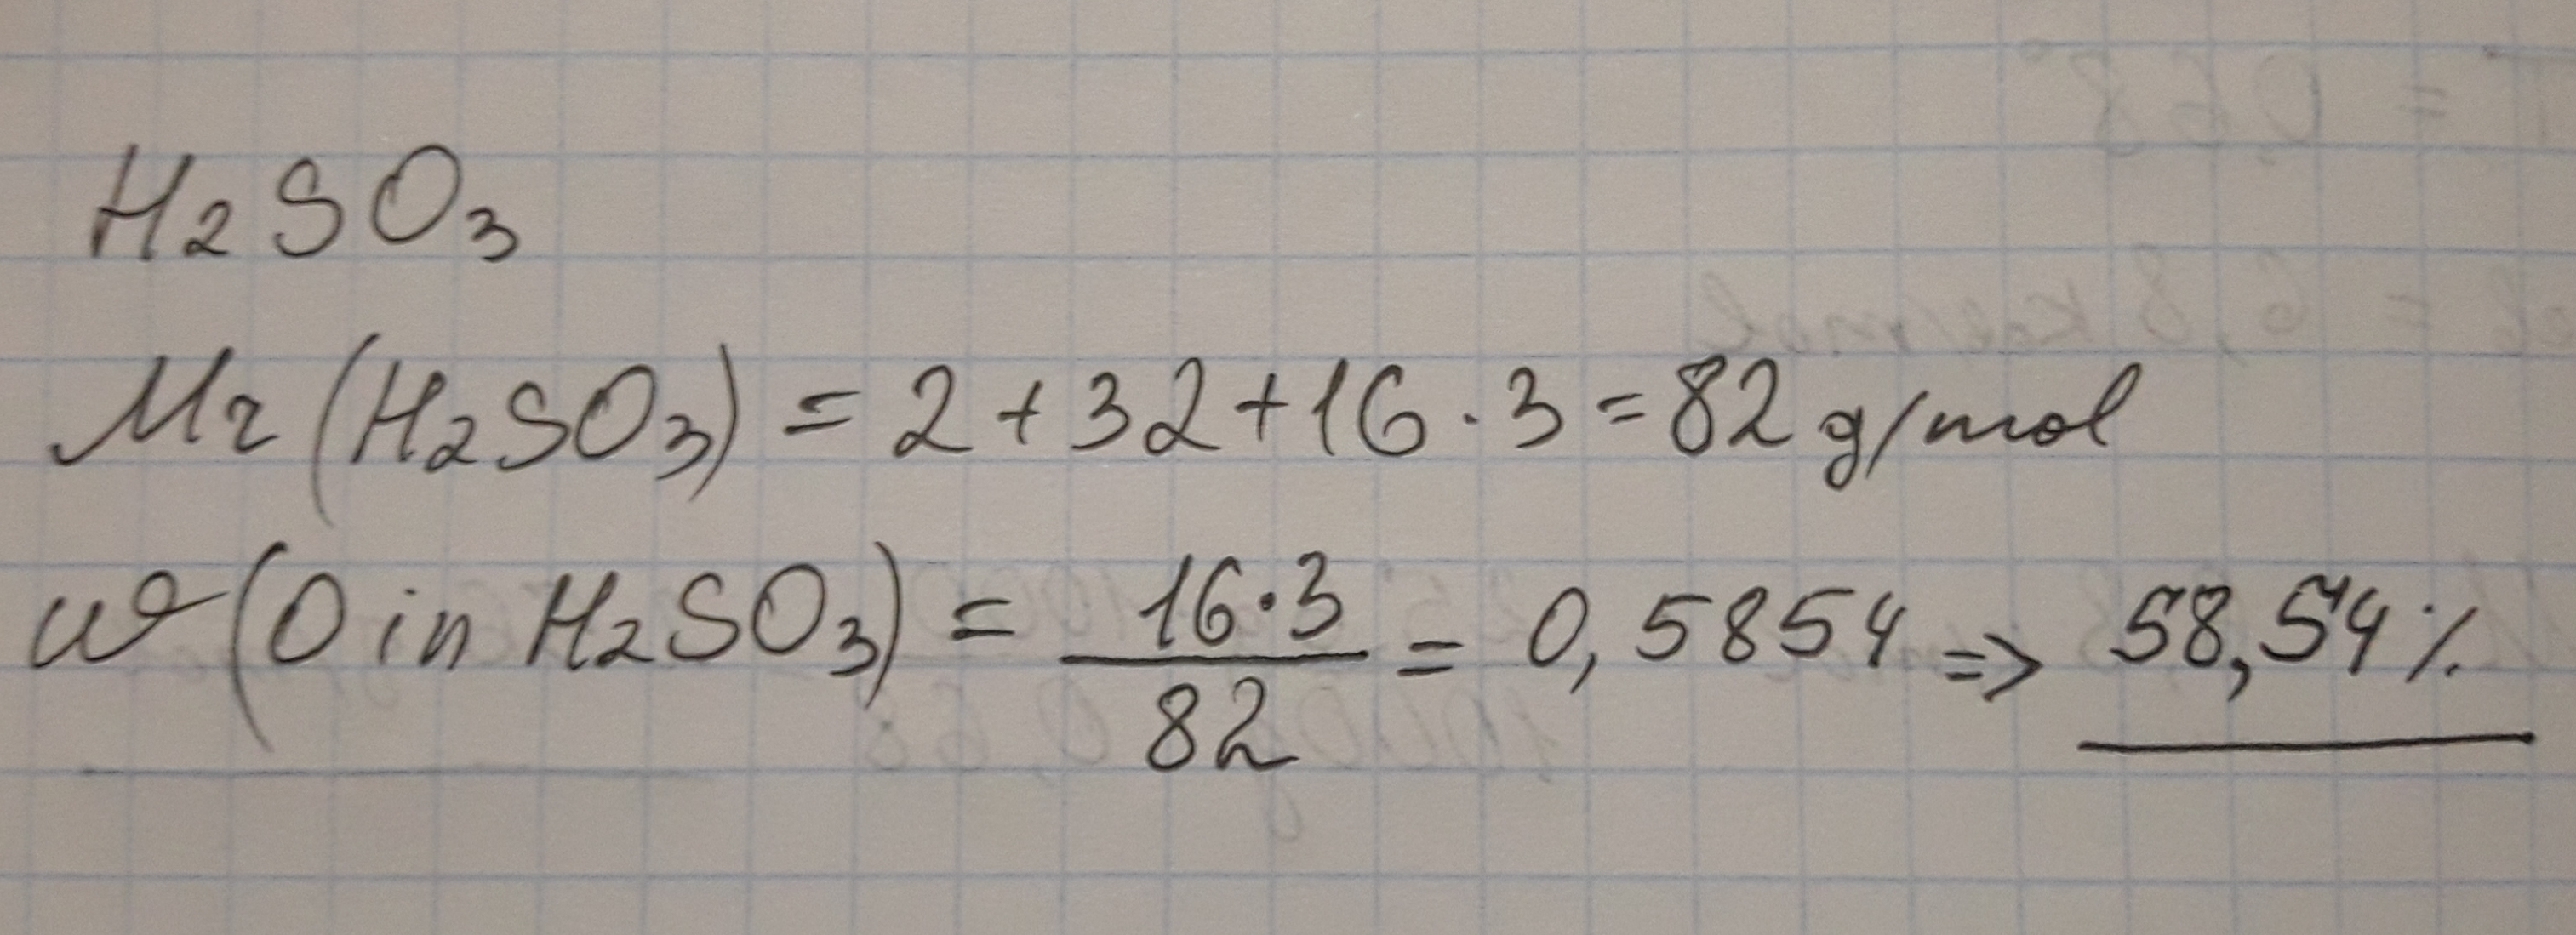 H2SO3
Mr(H2SO3) = 2+32+16·3=82 g/mol
w(O in H2SO3) = 16·3/82 = 0,5854 => 58,54%